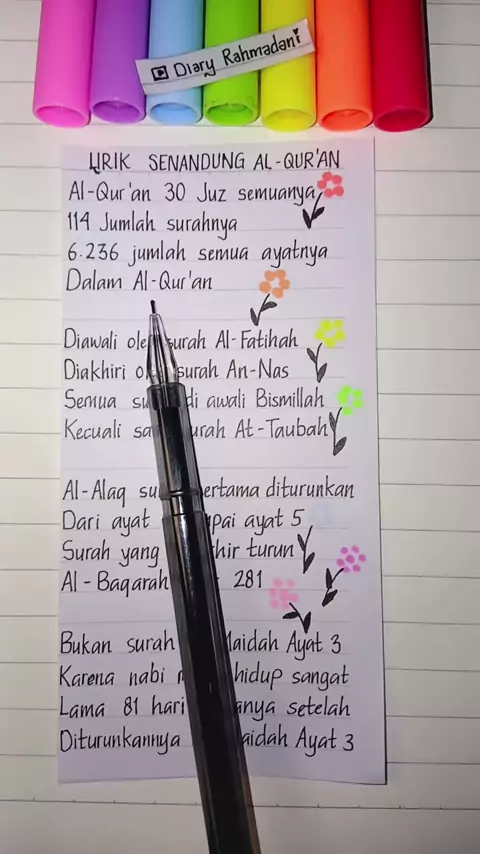 Diary Rahmadani
LIRIK SENANDUNG AL-QUR'AN
Al-Qur'an 30 Juz semuanya
114 Jumlah surahnya
6.236 jumlah semua ayatnya
Dalam Al-Qur'an
Diawali oleh surah Al-Fatihah
Diakhiri surah An-Nas
Semua di awali Bismillah
Kecuali surah At-Taubah
Al-Alaq pertama diturunkan
Dari ayat ayat 5
Surah yang turun
Al-Baqarah 281
Bukan surah Ayat 3
Karena nabi hidup sangat
Lama 81 hari setelah
Diturunkannya Ayat 3